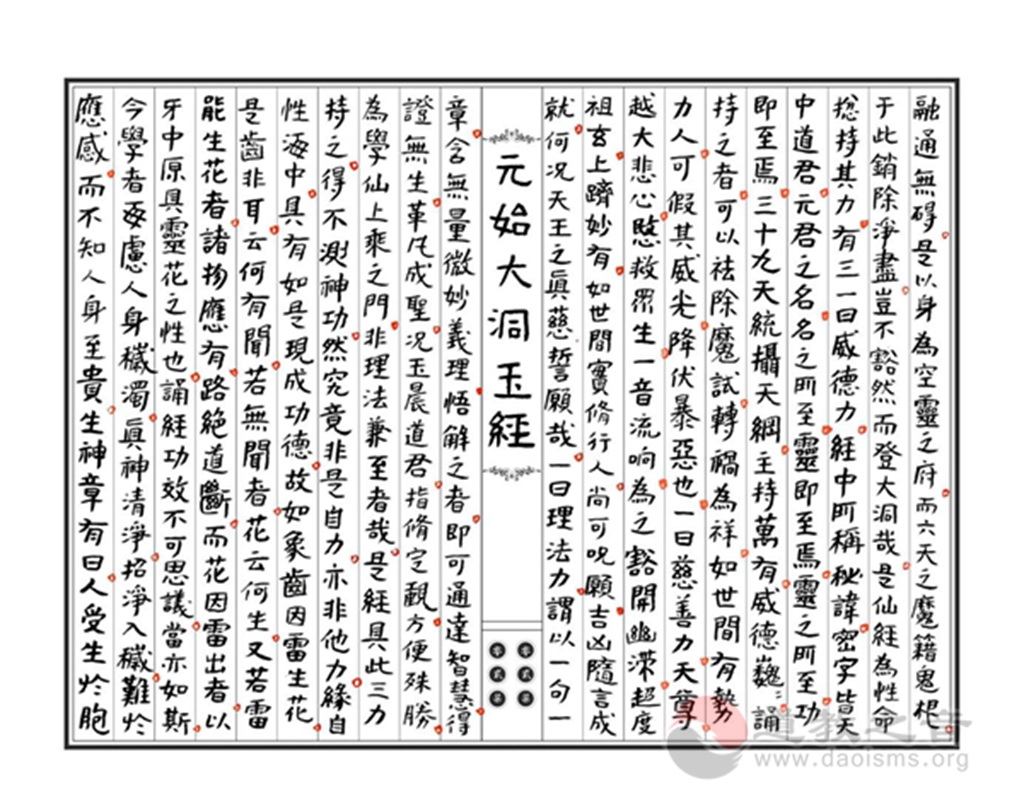 融通無碍是以身為空靈之府而六天之魔籍鬼祀
于此銷除淨盡豈不豁然而登大洞哉是仙經為性命
揔持其力有三一曰威德力經中所稱秘諱密字皆天
中道君元君之名名之所至靈即至焉靈之所至功
即至焉三十九天統攝天綱主持萬有威德巍巍誦
持之者可以袪除魔試轉禍為祥如世間有勢
力人可假其威光降伏暴惡也一曰慈善力天尊
越大悲心愍救眾生一音流响為之豁開幽滯超度
祖玄上躋妙有如世間實脩行人尚可呪願吉凶隨言成
就何况天王之真慈誓願哉一曰理法力謂以一句一
元始大洞玉經
章含無量微妙義理悟解之者即可通達智慧得
證無生革凡成聖况玉晨道君指脩定觀方便殊勝
為學仙上乘之門非理法兼至者哉是經具此三力
持之得不測神功然究竟非是自力亦非他力緣自
性海中具有如是現成功德故如象齒因雷生花
是齒非耳云何有聞若無聞者花云何生又若雷
能生花者諸物應有路絕道斷而花因雷出者以
牙中原具靈花之性也誦經功效不可思議當亦如斯
今學者每慮人身穢濁真神清淨招淨入穢難於
應感而不知人身至貴生神章有曰人受生於胞
道教之音
www.daoisms.org